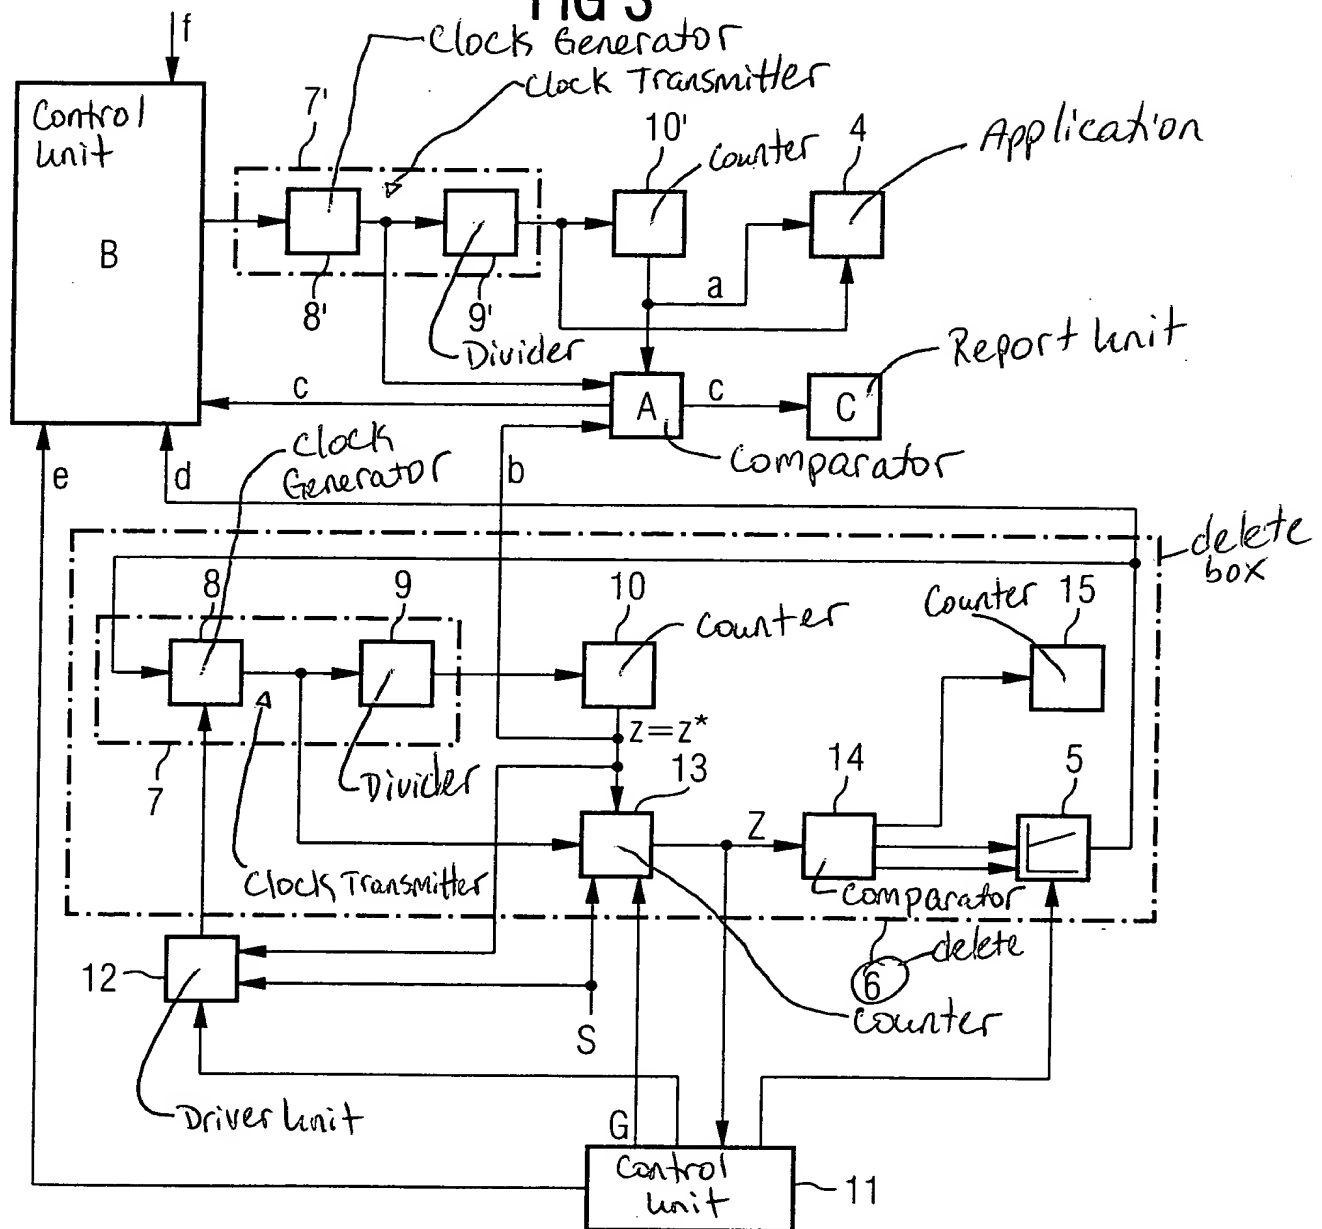 FIG 3
f
Clock Generator
Clock Transmitter
Control
Unit
7'
10'
Counter
4
Application
B
8'
9'
Divider
a
Report Unit
c
A
c
C
Comparator
e
d
Clock
Generator
b
delete
box
8
9
10
Counter
Counter
15
z=z*
13
14
5
7
Divider
Z
Clock Transmitter
Comparator
delete
6
12
S
Counter
Driver Unit
G
Control
Unit
11